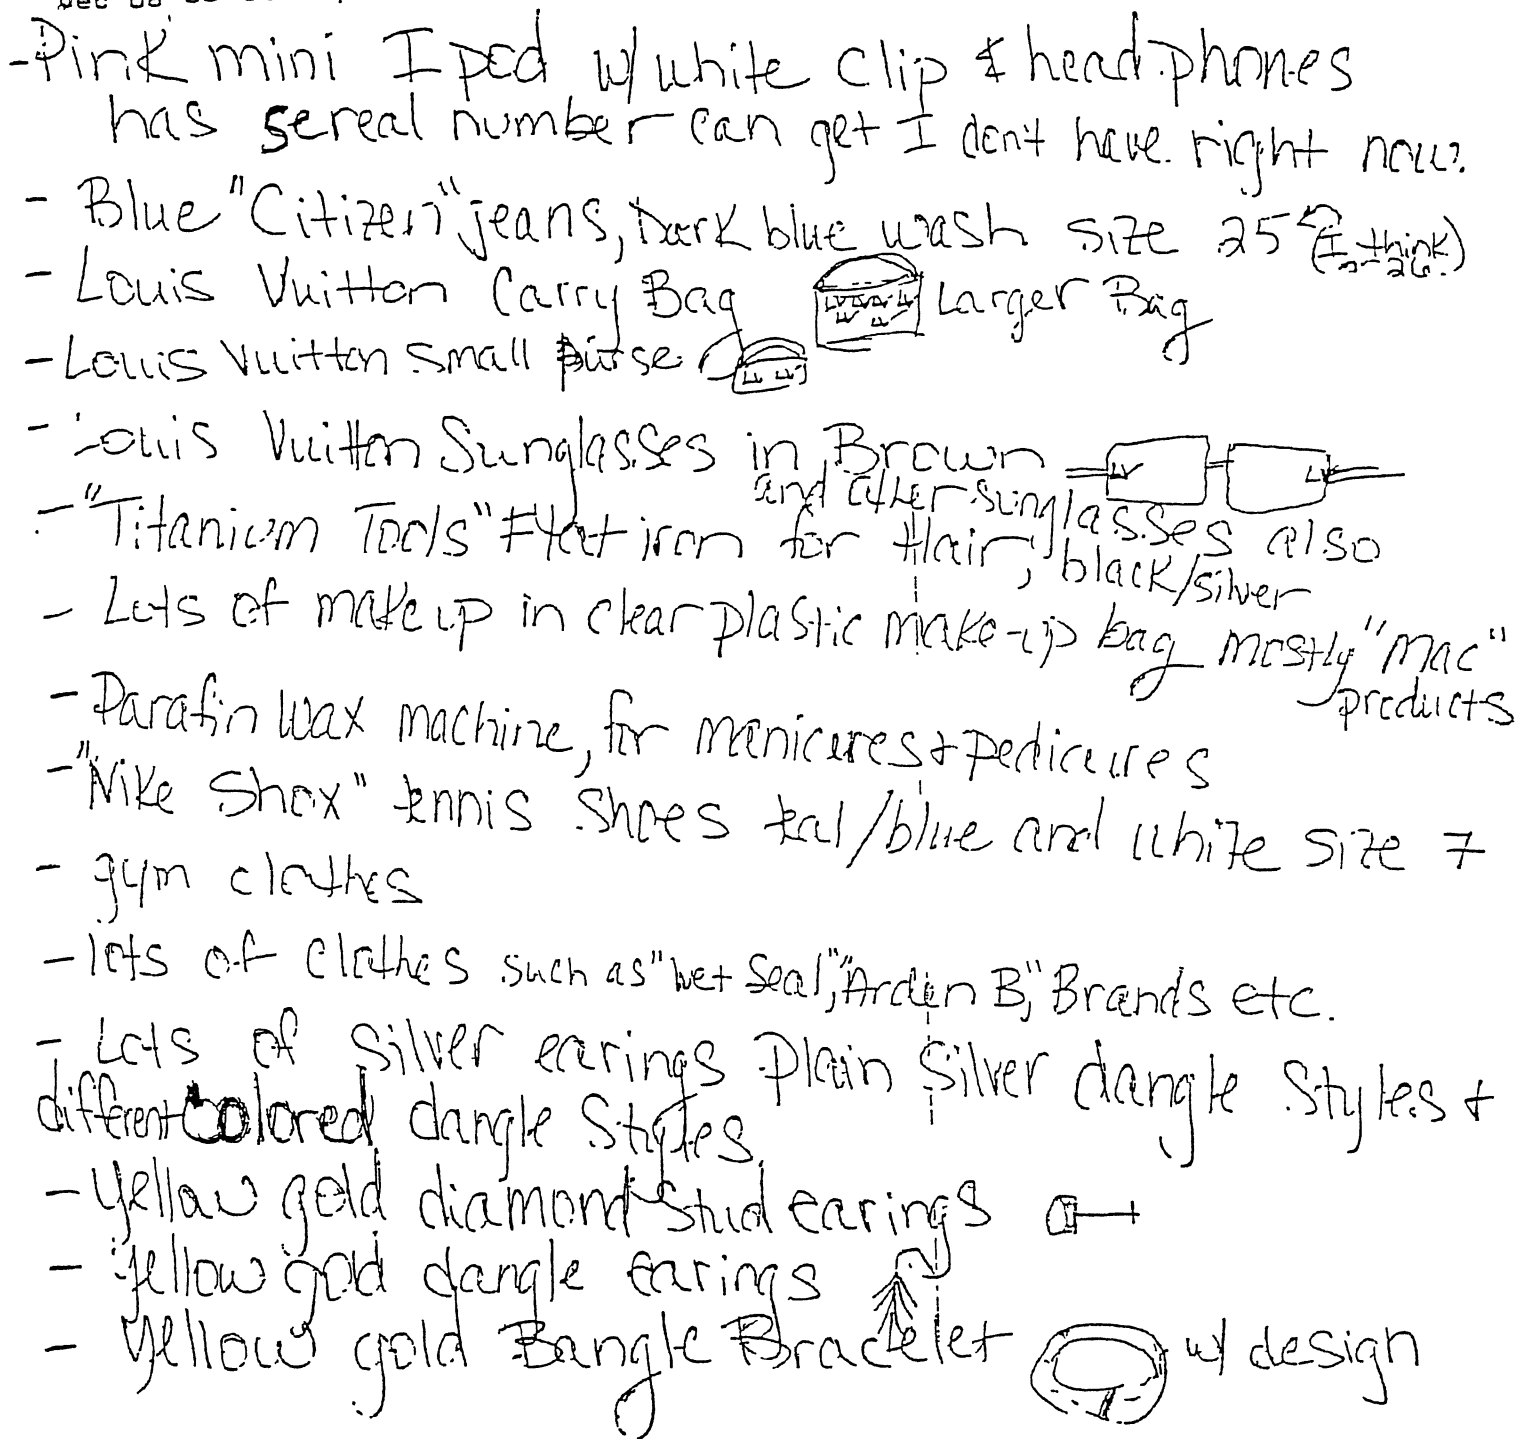 -Pink mini Ipod w/white clip & head.phones
has sereal number can get I don't have right now.
- Blue "Citizen" jeans, Dark blue wash size 25 (I think)
or 26.
- Louis Vuitton Carry Bag Larger Bag
- Louis Vuitton small purse
- Louis Vuitton Sunglasses in Brown
and other sunglasses also
- "Titanium Tools" Flat iron for Hair, black/silver
- Lots of make up in clear plastic make-up bag mostly "Mac"
products
- Parafin wax machine, for manicures + pedicures
- "Nike Shox" tennis shoes teal/blue and white size 7
- gym clothes
- lots of clothes such as "Wet Seal", "Arden B," Brands etc.
- Lots of silver earings Plain silver dangle styles +
different colored dangle styles.
- Yellow gold diamond stud earings
- Yellow gold dangle earings
- Yellow gold Bangle Bracelet w/ design